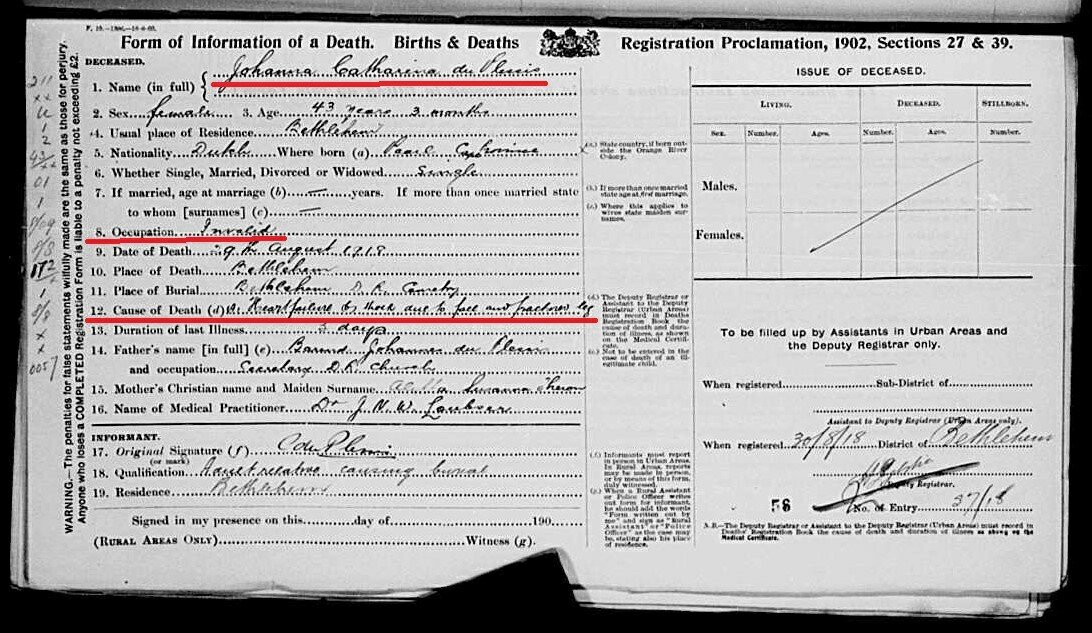 F. 10.—
Form of Information of a Death. Births & Deaths Registration Proclamation, 1902, Sections 27 & 39.
WARNING.—The penalties for false statements wilfully made are the same as those for perjury.
Anyone who loses a COMPLETED Registration Form is liable to a penalty not exceeding £2.
DECEASED.
1. Name (in full) Johanna Catharina du Plessis
2. Sex female 3. Age 43 years 3 months
4. Usual place of Residence Bethlehem
5. Nationality Dutch Where born (a) Paarl Cape Province
6. Whether Single, Married, Divorced or Widowed Single
7. If married, age at marriage (b) — years. If more than once married state
to whom [surnames] (c) —
8. Occupation Invalid
9. Date of Death 9th August 1918
10. Place of Death Bethlehem
11. Place of Burial Bethlehem D. R. Cemetry
12. Cause of Death (d) a. Heartfailure b. shock due to fall and fractured leg
13. Duration of last Illness 3 days
14. Father's name [in full] (e) Barend Johannes du Plessis
and occupation Secretary D. R. Church
15. Mother's Christian name and Maiden Surname Susanna
16. Name of Medical Practitioner Dr J. N. W. Loubser
INFORMANT.
17. Original Signature (f) C du Plessis
(or mark)
18. Qualification relative causing burial
19. Residence Bethlehem
Signed in my presence on this day of 190
(RURAL AREAS ONLY) Witness (g).
(a.) State country, if born outside the Orange River Colony.
(b.) If more than once married state age at first marriage.
(c.) Where this applies to wives state maiden surnames.
(d.) The Deputy Registrar or Assistant to the Deputy Registrar (Urban Areas) must record in Deaths Registration Book the cause of death and duration of illness, as shown on the Medical Certificate.
(e.) Not to be entered in the case of death of an illegitimate child.
(f.) Informants must report in person in Urban Areas. In Rural Areas, reports may be made in person, or by means of this form, duly witnessed.
(g.) When a Rural Assistant or Police Officer writes out form for informant, he should add the words "Form written out by me" and sign as "Rural Assistant" or "Police Officer" as the case may be, stating also his place of residence.
ISSUE OF DECEASED.
LIVING. DECEASED. STILLBORN.
Sex. Number. Ages. Number. Ages. Number.
Males.
Females.
To be filled up by Assistants in Urban Areas and
the Deputy Registrar only.
When registered Sub-District of
Assistant to Deputy Registrar (Urban Areas only).
When registered 30/8/18 District of Bethlehem
Deputy Registrar.
58 No. of Entry 37/18
N.B.—The Deputy Registrar or Assistant to the Deputy Registrar (Urban Areas) must record in
Deaths Registration Book the cause of death and duration of illness as shown on the
Medical Certificate.